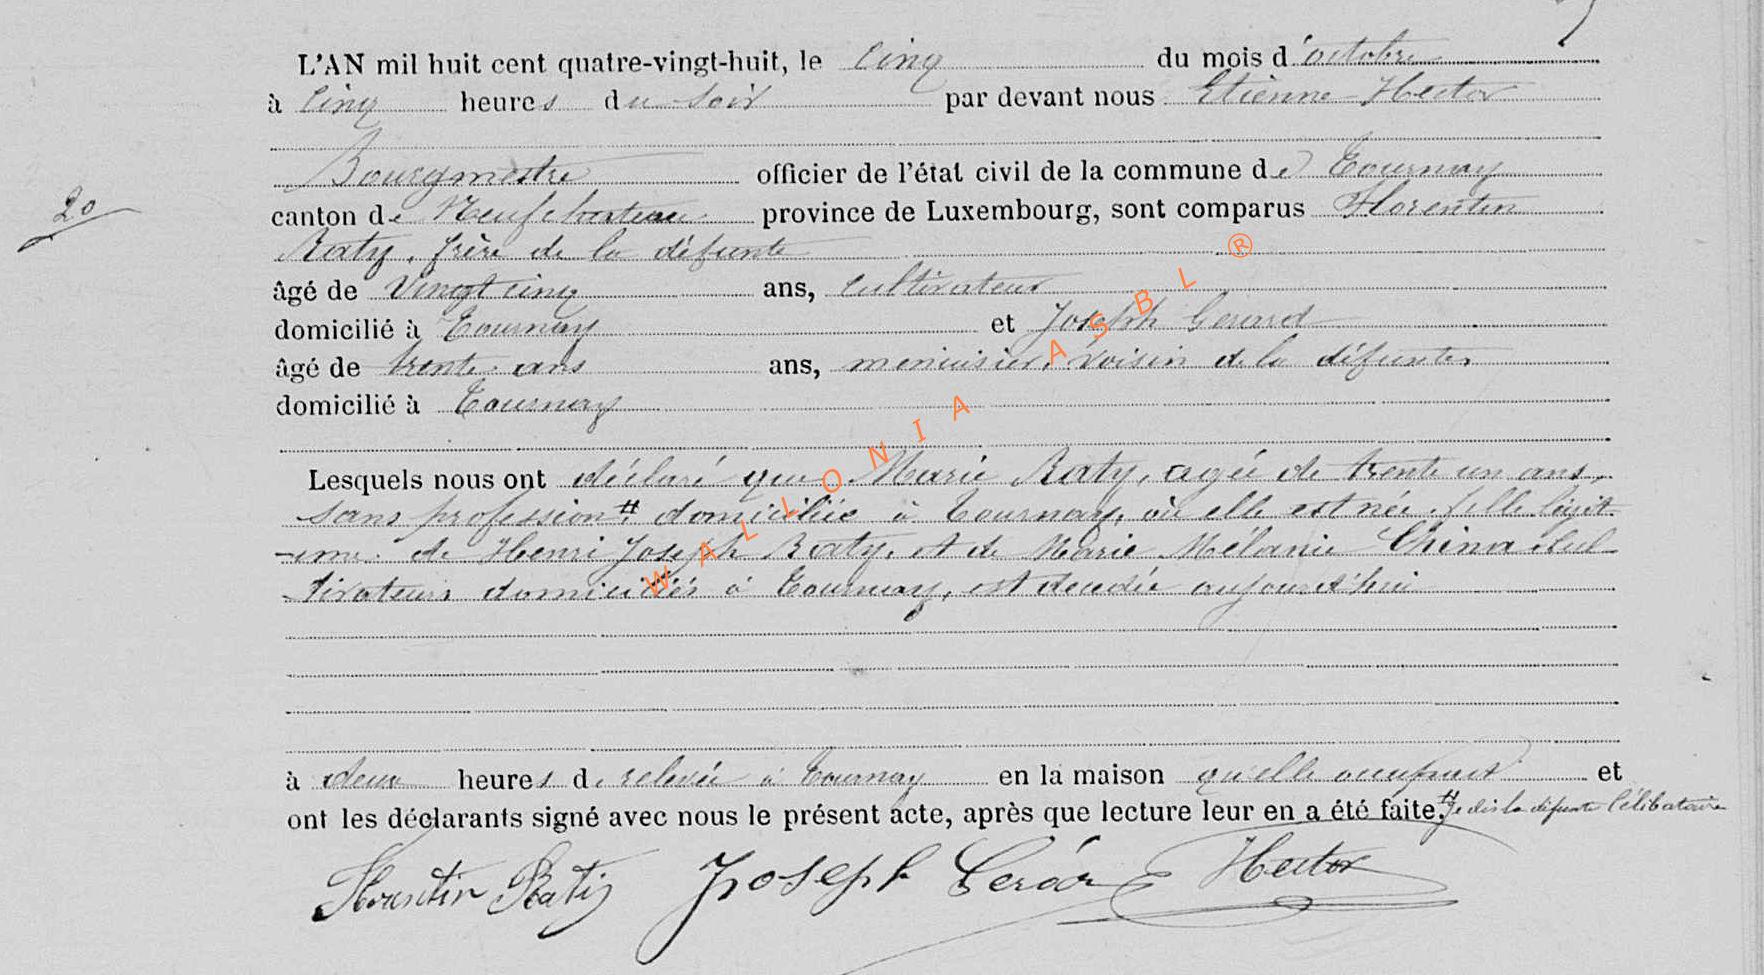 L'AN mil huit cent quatre-vingt-huit, le cinq du mois d'octobre
à cinq heures du soir par devant nous Etienne Hector
Bourgmestre officier de l'état civil de la commune de Tournay
20
canton de Neufchateau province de Luxembourg, sont comparus Florentin
Raty, frère de la défunte
âgé de vingt cinq ans, cultivateur
domicilié à Tournay et Joseph Gerard
âgé de trente ans ans, menuisier, voisin de la défunte,
domicilié à Tournay
Lesquels nous ont déclaré que Marie Raty, agée de trente un ans,
sans profession # domiciliée à Tournay, où elle est née, fille légit
-ime de Henri Joseph Raty, et de Marie Mélanie China cul
tivateurs domiciliés à Tournay, est décédée aujourd'hui
à deux heures de relevée à Tournay en la maison qu'elle occupait et
ont les déclarants signé avec nous le présent acte, après que lecture leur en a été faite. # Je dis la défunte célibataire
Florentin Raty Joseph Gerár Hector
WALLONIA ASBL ®